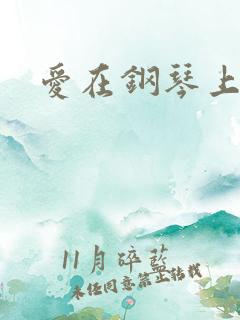 愛在鋼琴上
11月碎藍
未經同意禁止轉載